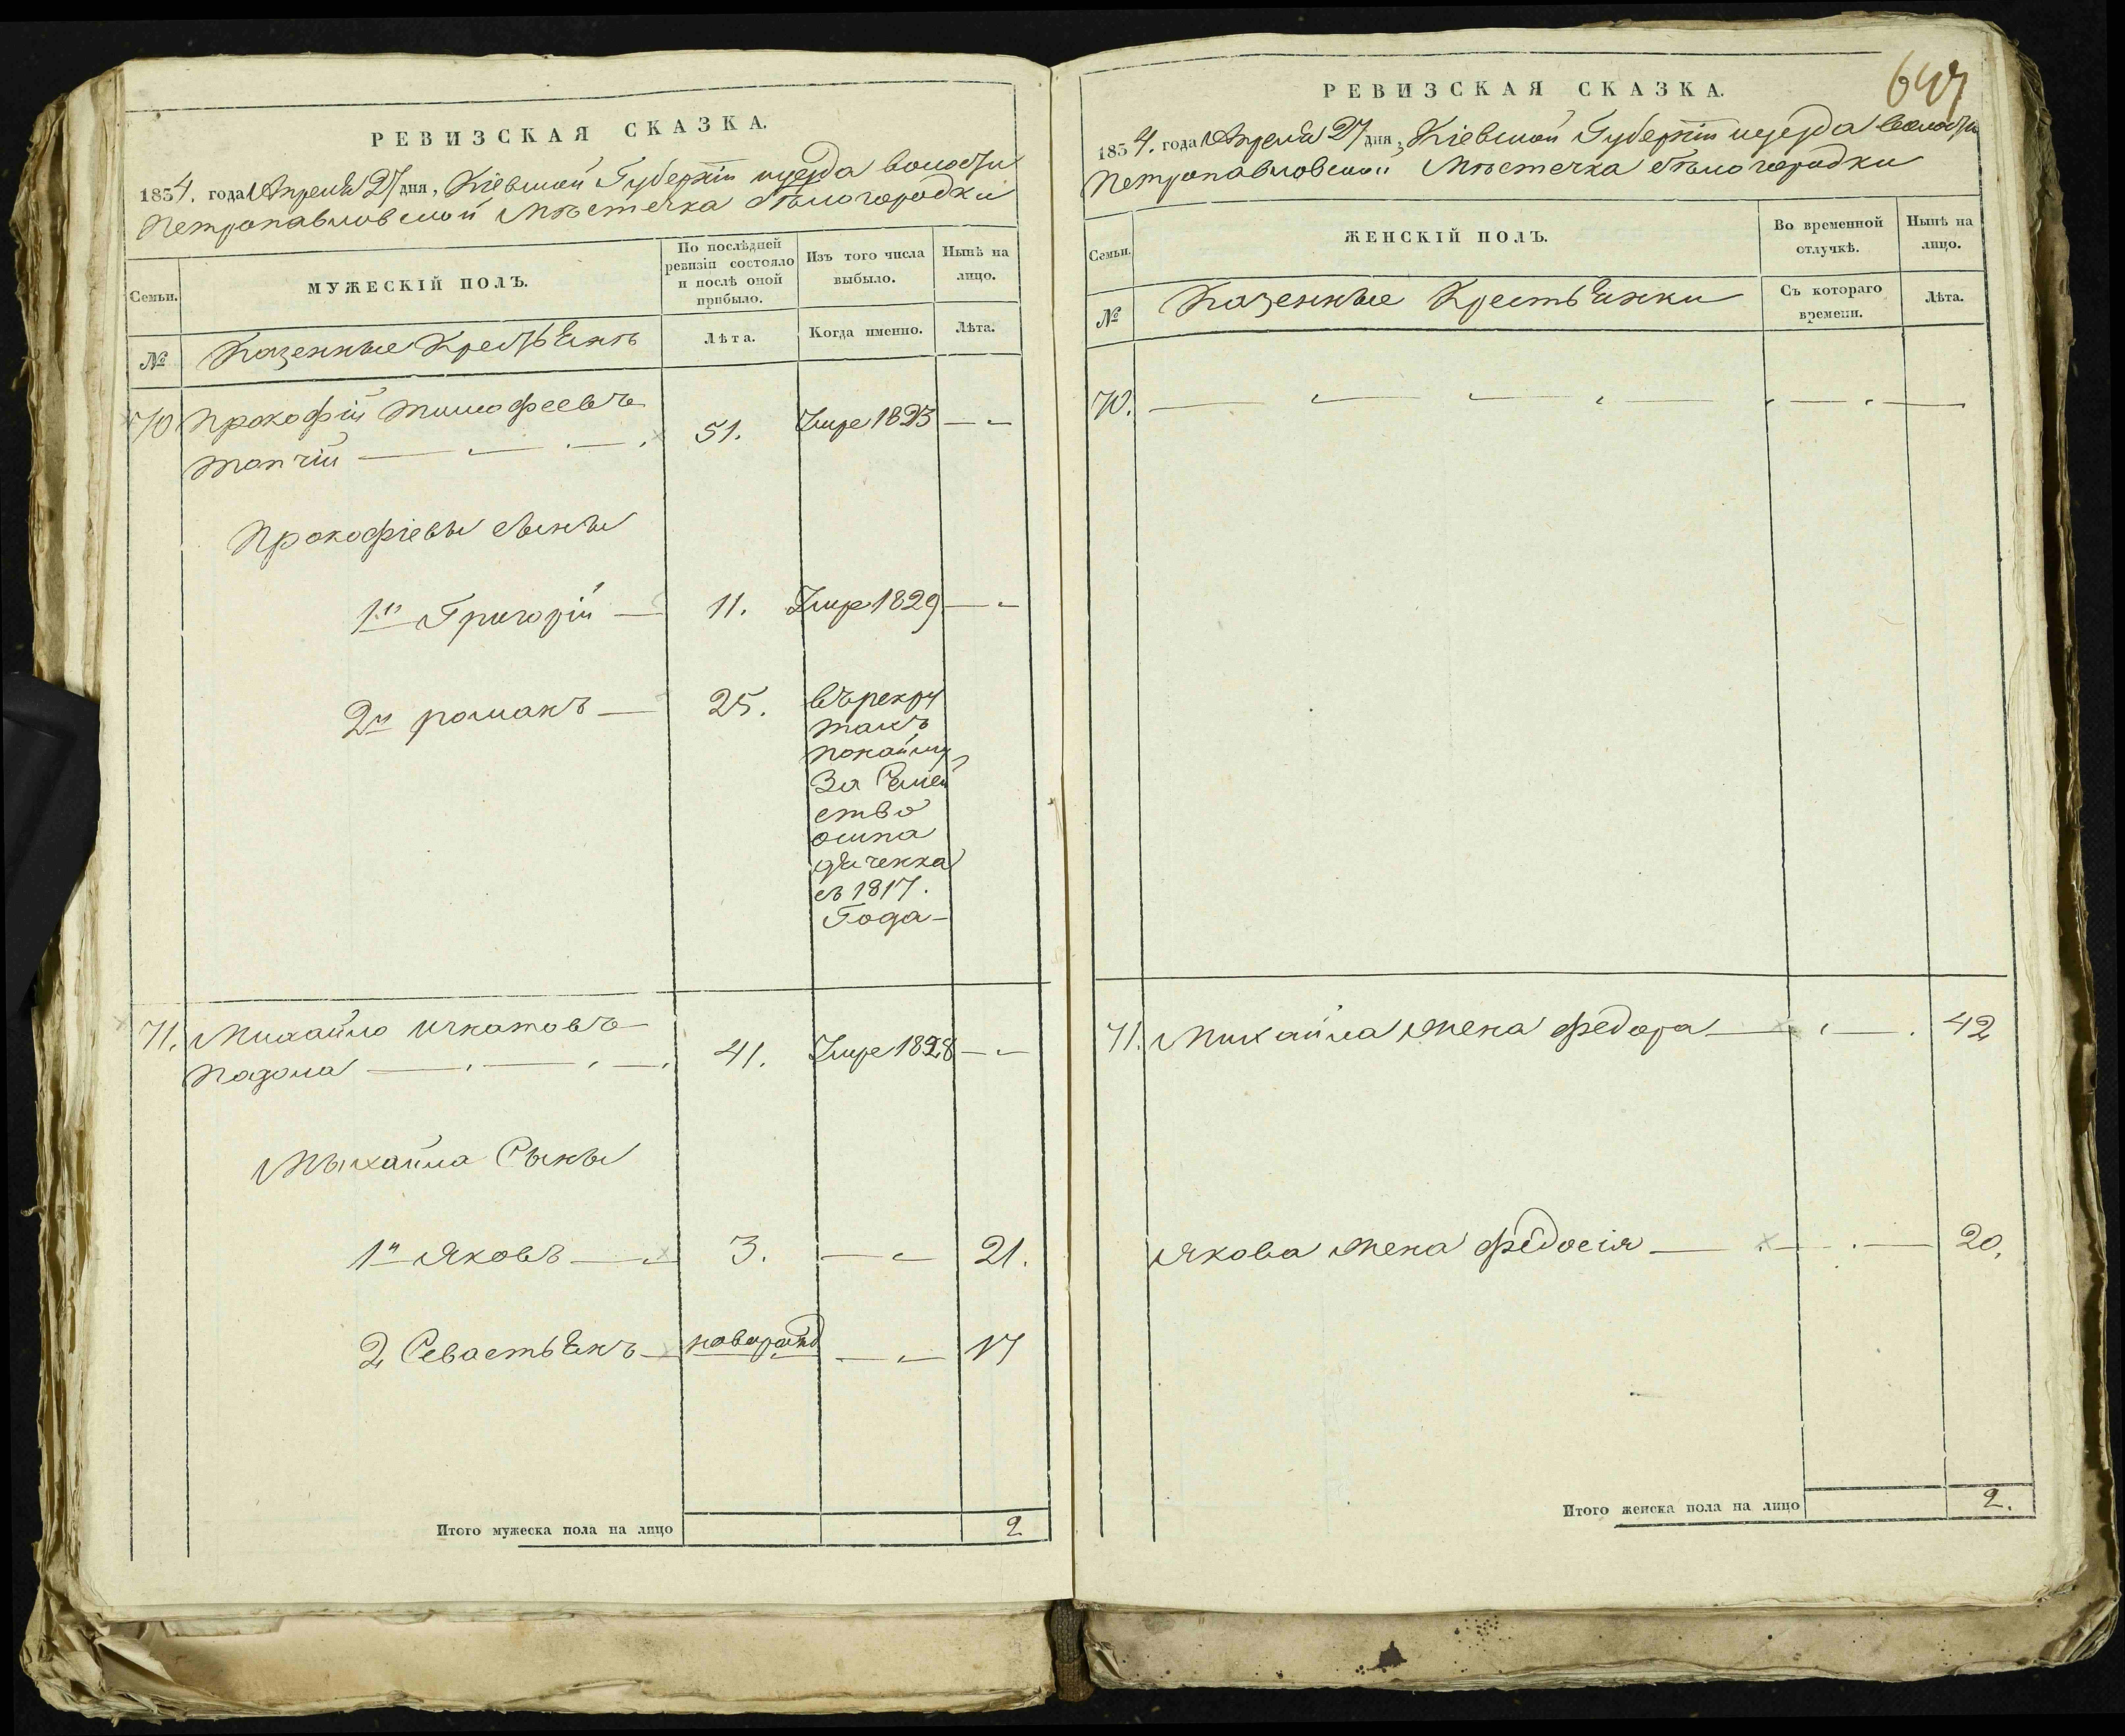 РЕВИЗСКАЯ СКАЗКА.
1834. года Апреля 27 дня, Кіевской Губерніи уезда волости
Петропавловской Мѣстечка Бѣлогородки
Семьи.
МУЖЕСКІЙ ПОЛЪ.
По послѣдней ревизіи состояло и послѣ оной прибыло.
Изъ того числа выбыло.
Нынѣ на лицо.
№
Казенные Крестьянѣ
Лѣта.
Когда именно.
Лѣта.
70 Прокофій Тимофеевъ
Топчій 51. Умре 1823
Прокофіевы сыны
1й Григорій 11. Умре 1829
2й романъ 25. въ рекру
тахъ
За Семей
ство
осипа
дяченка
съ 1817.
Года
71. Михайло Игнатовъ
Падома 41. Умре 1828
Мыхайла Сыны
1й Яковъ 3. 21.
2 Севастьянъ новорожд 17
Итого мужеска пола на лицо 2
РЕВИЗСКАЯ СКАЗКА.
647
1834. года Апреля 27 дня, Кіевской Губерніи уезда волости
Петропавловской Мѣстечка Бѣлогородки
Семьи.
ЖЕНСКІЙ ПОЛЪ.
Во временной отлучкѣ.
Нынѣ на лицо.
№
Казенные Крестьянки
Съ котораго времени.
Лѣта.
70.
71. Михайла жена Федора 42
Якова жена Федосія 20.
Итого женска пола на лицо 2.